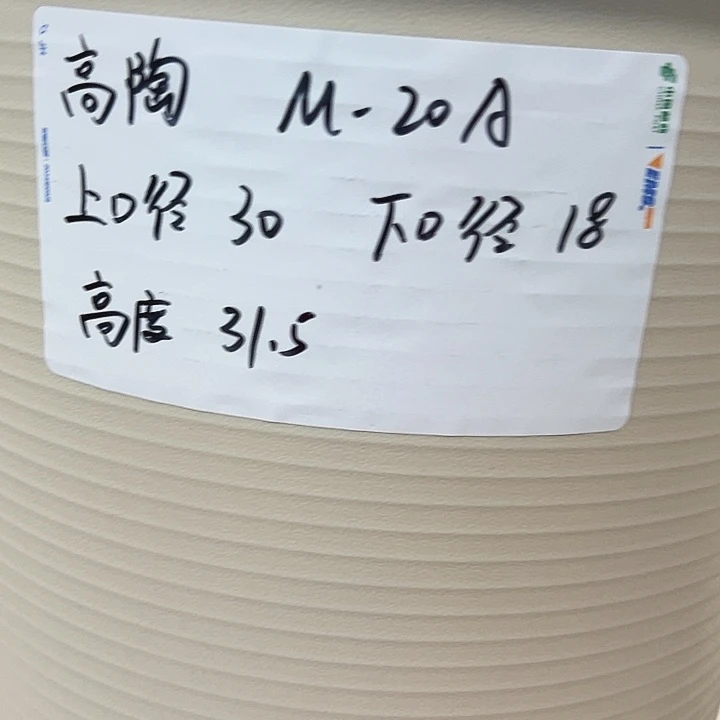 高陶 M-20A
上口径 30 下口径 18
高度 31.5